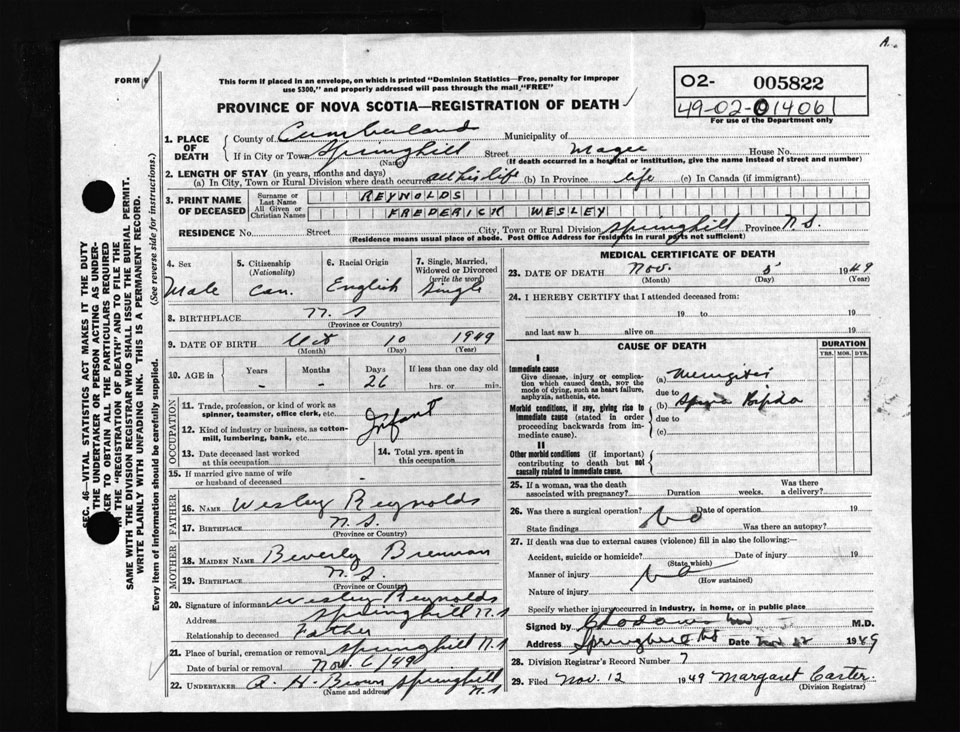 A.
FORM 6
This form if placed in an envelope, on which is printed "Dominion Statistics—Free, penalty for improper
use $300," and properly addressed will pass through the mail "FREE"
PROVINCE OF NOVA SCOTIA—REGISTRATION OF DEATH
02- 005822
49-02-014061
For use of the Department only
1. PLACE OF DEATH County of Cumberland Municipality of
If in City or Town Springhill Street Magee House No.
(Name) (If death occurred in a hospital or institution, give the name instead of street and number)
2. LENGTH OF STAY (in years, months and days)
(a) In City, Town or Rural Division where death occurred all his life (b) In Province life (c) In Canada (if immigrant)
3. PRINT NAME OF DECEASED Surname or Last Name REYNOLDS
All Given or Christian Names FREDERICK WESLEY
RESIDENCE No. Street City, Town or Rural Division Springhill Province N.S.
(Residence means usual place of abode. Post Office Address for residents in rural parts not sufficient)
4. Sex Male
5. Citizenship (Nationality) Can.
6. Racial Origin English
7. Single, Married, Widowed or Divorced (write the word) Single
8. BIRTHPLACE N.S
(Province or Country)
9. DATE OF BIRTH Oct 10 1949
(Month) (Day) (Year)
10. AGE in Years Months Days If less than one day old
- - 26 hrs. or min.
OCCUPATION
11. Trade, profession, or kind of work as
spinner, teamster, office clerk, etc.
Infant
12. Kind of industry or business, as cotton-
mill, lumbering, bank, etc.
13. Date deceased last worked
at this occupation
14. Total yrs. spent in
this occupation
15. If married give name of wife
or husband of deceased -
FATHER
16. NAME Wesley Reynolds
17. BIRTHPLACE N.S.
(Province or Country)
MOTHER
18. MAIDEN NAME Beverly Brennan
19. BIRTHPLACE N.S.
(Province or Country)
20. Signature of informant Wesley Reynolds
Address Springhill N.S
Relationship to deceased Father
21. Place of burial, cremation or removal Springhill N.S
Date of burial or removal Nov. 6/49
22. UNDERTAKER A. H. Brown Springhill N.S
(Name and address)
MEDICAL CERTIFICATE OF DEATH
23. DATE OF DEATH Nov. 5 1949
(Month) (Day) (Year)
24. I HEREBY CERTIFY that I attended deceased from:
19 to 19
and last saw h alive on 19
CAUSE OF DEATH
DURATION
YRS. MOS. DYS.
I
Immediate cause
Give disease, injury or complica-
tion which caused death, NOT the
mode of dying, such as heart failure,
asphyxia, asthenia, etc.
(a) Meningitis
due to
Morbid conditions, if any, giving rise to
immediate cause (stated in order
proceeding backwards from im-
mediate cause).
(b) Spina Bifida
due to
(c)
II
Other morbid conditions (if important)
contributing to death but not
causally related to immediate cause.
25. If a woman, was the death
associated with pregnancy? Duration weeks. Was there
a delivery?
26. Was there a surgical operation? No Date of operation 19
State findings Was there an autopsy?
27. If death was due to external causes (violence) fill in also the following:—
Accident, suicide or homicide? Date of injury 19
(State which)
Manner of injury No
(How sustained)
Nature of injury
Specify whether injury occurred in industry, in home, or in public place
Signed by M.D.
Address Springhill NS Date Nov 12 1949
28. Division Registrar's Record Number 7
29. Filed Nov. 12 1949 Margaret Carter.
(Division Registrar)
SEC. 46—VITAL STATISTICS ACT MAKES IT THE DUTY
THE UNDERTAKER OR PERSON ACTING AS UNDER-
KER TO OBTAIN ALL THE PARTICULARS REQUIRED
IN THE "REGISTRATION OF DEATH" AND TO FILE THE
SAME WITH THE DIVISION REGISTRAR WHO SHALL ISSUE THE BURIAL PERMIT.
WRITE PLAINLY WITH UNFADING INK. THIS IS A PERMANENT RECORD.
Every item of information should be carefully supplied. (See reverse side for instructions.)